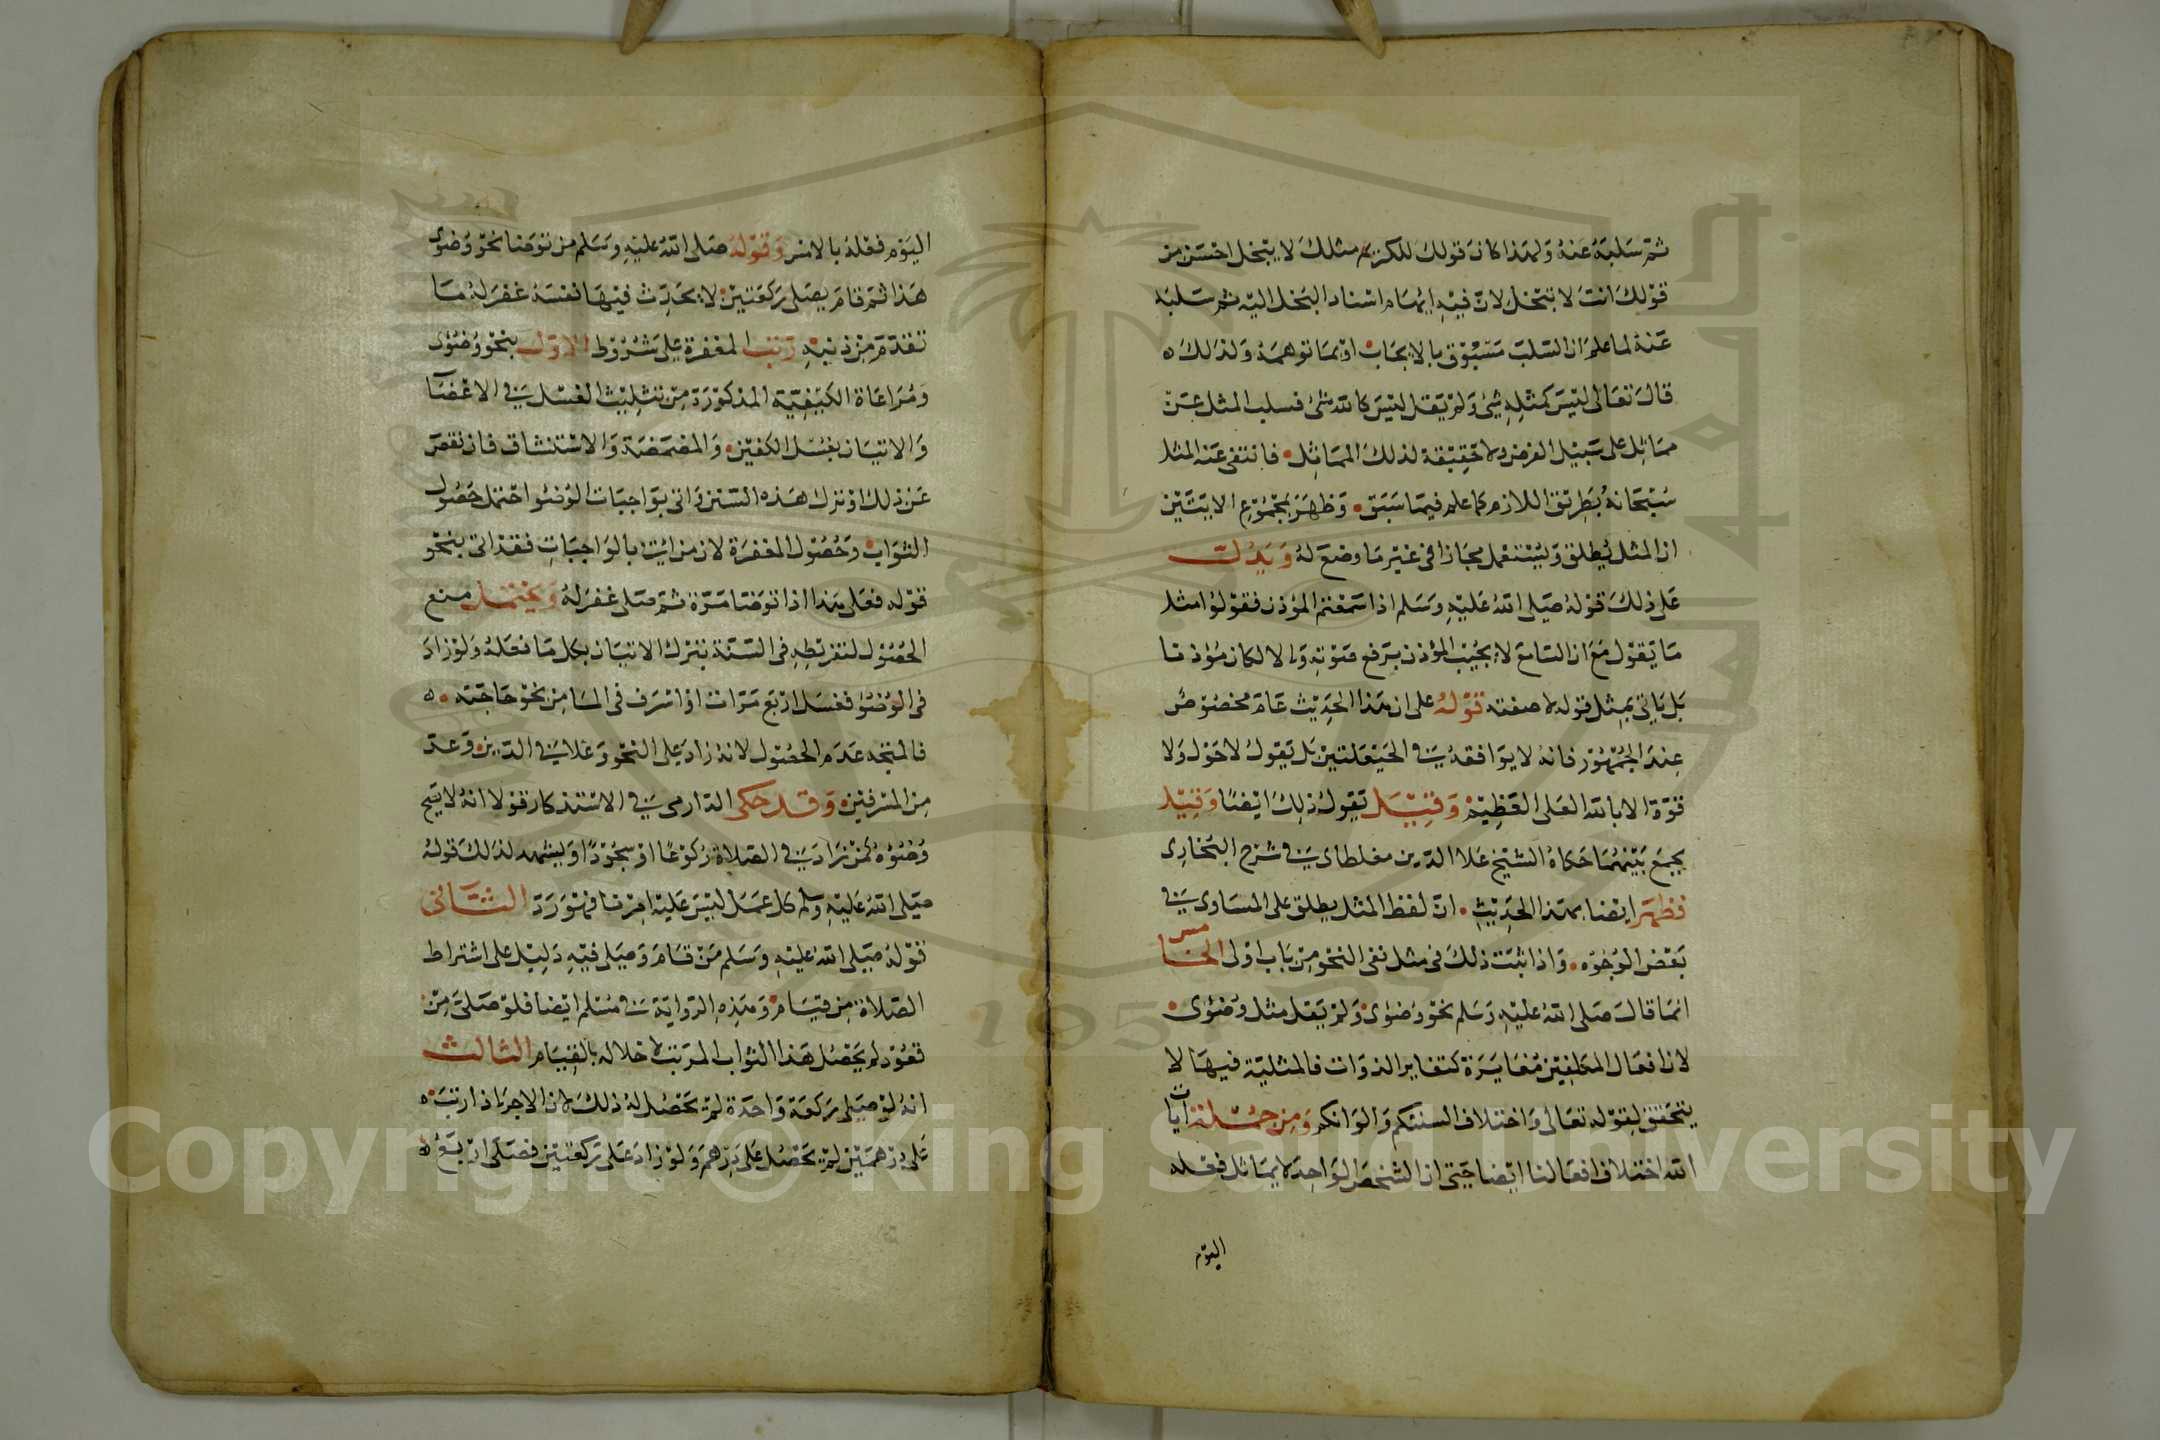 ثم سلبه عنه ولهذا كان قولك للكريم مثلك لا يبخل احسن من
قولك انت لا تبخل لان فيه ايهام اسناد البخل اليه ثم سلبه
عنه لما علم ان السلب مسبوق بالايجاب او بما توهمه ولذلك ه
قال تعالى ليس كمثله شئ ولم يقل ليس كالله شئ فسلب المثل عن
مماثل على سبيل الفرض ولا حقيقة لذلك المماثل فانتفى عنه المثل
سبحانه بطريق اللازم كما علم فيما سبق وظهر بمجموع الايتين
ان المثل يطلق ويستعمل مجازا في غير ما وضع له ويدل
على ذلك قوله صلى الله عليه وسلم اذا سمعتم المؤذن فقولوا مثل
ما يقول مع ان السامع لا يجيب المؤذن برفع صوته والا لكان مؤذنا
بل ياتي بمثل قوله لا صفته قوله على ان هذا الحديث عام مخصوص
عند الجمهور فانه لا يوافقه في الحيعلتين بل يقول لا حول ولا
قوة الا بالله العلى العظيم وقيل يقول ذلك ايضا وقيل
يجمع بينهما حكاه الشيخ علا الدين مغلطاى في شرح البخارى
فظهر ايضا بهذا الحديث ان لفظ المثل يطلق على المساوى في
بعض الوجوه واذا ثبت ذلك في مثل نفى النحو من باب اولى الخامس
انما قال صلى الله عليه وسلم نحو وضوى ولم يقل مثل وضوئى
لان افعال المكلفين مغايرة كتغاير الذوات فالمثلية فيها لا
يتحقق لقوله تعالى واختلاف السنتكم والوانكم ومن جملة ايات
الله اختلاف افعالنا ايضا حتى ان الشخص الواحد لا يماثل فعله
اليوم
اليوم فعله بالامس وقوله صلى الله عليه وسلم من توضا نحو وضوى
هذا ثم قام يصلى ركعتين لا يحدث فيهما نفسه غفر له ما
تقدم من ذنبه رتب المغفرة على شروط الاول نحو وضوى
ومراعاة الكيفية المذكورة من تثليث الغسل في الاعضا
والاتيان بغسل الكفين والمضمضة والاستنشاق فان نقص
عن ذلك او ترك هذه السنن واتى بواجبات الوضوا احتمل حصول
الثواب وحصول المغفرة لان من ايت بالواجبات فقد اتى بنحو
قوله فعلى هذا اذا توضا مرة ثم صلى غفر له ويحتمل منع
الحصول لتفريطه في السنة بترك الاتيان بكل ما فعله ولو زاد
في الوضو فغسل اربع مرات او اسرف في الما من نحو حاجته ه
فالمتجه عدم الحصول لانه زاد على النحو وغلا في الدين وعد
من المسرفين وقد حكى الدارمى في الاستذكار قولا انه لا يصح
وضوه كمن زاد في الصلاة ركوعا او سجودا ويشهد لذلك قوله
صلى الله عليه وسلم كل عمل ليس عليه امرنا فهو رد الثانى
قوله صلى الله عليه وسلم من قام وصلى فيه دليل على اشتراط
الصلاة من قيام وهذه الرواية في مسلم ايضا فلو صلى من
قعود لم يحصل هذا الثواب المرتب لاخلاله بالقيام الثالث
انه لو صلى ركعة واحدة لم يحصل له ذلك لان الاجر اذا رتب ه
على درهمين لم يحصل على درهم ولو زاد على ركعتين فصلى اربع ه
Copyright © King Saud University